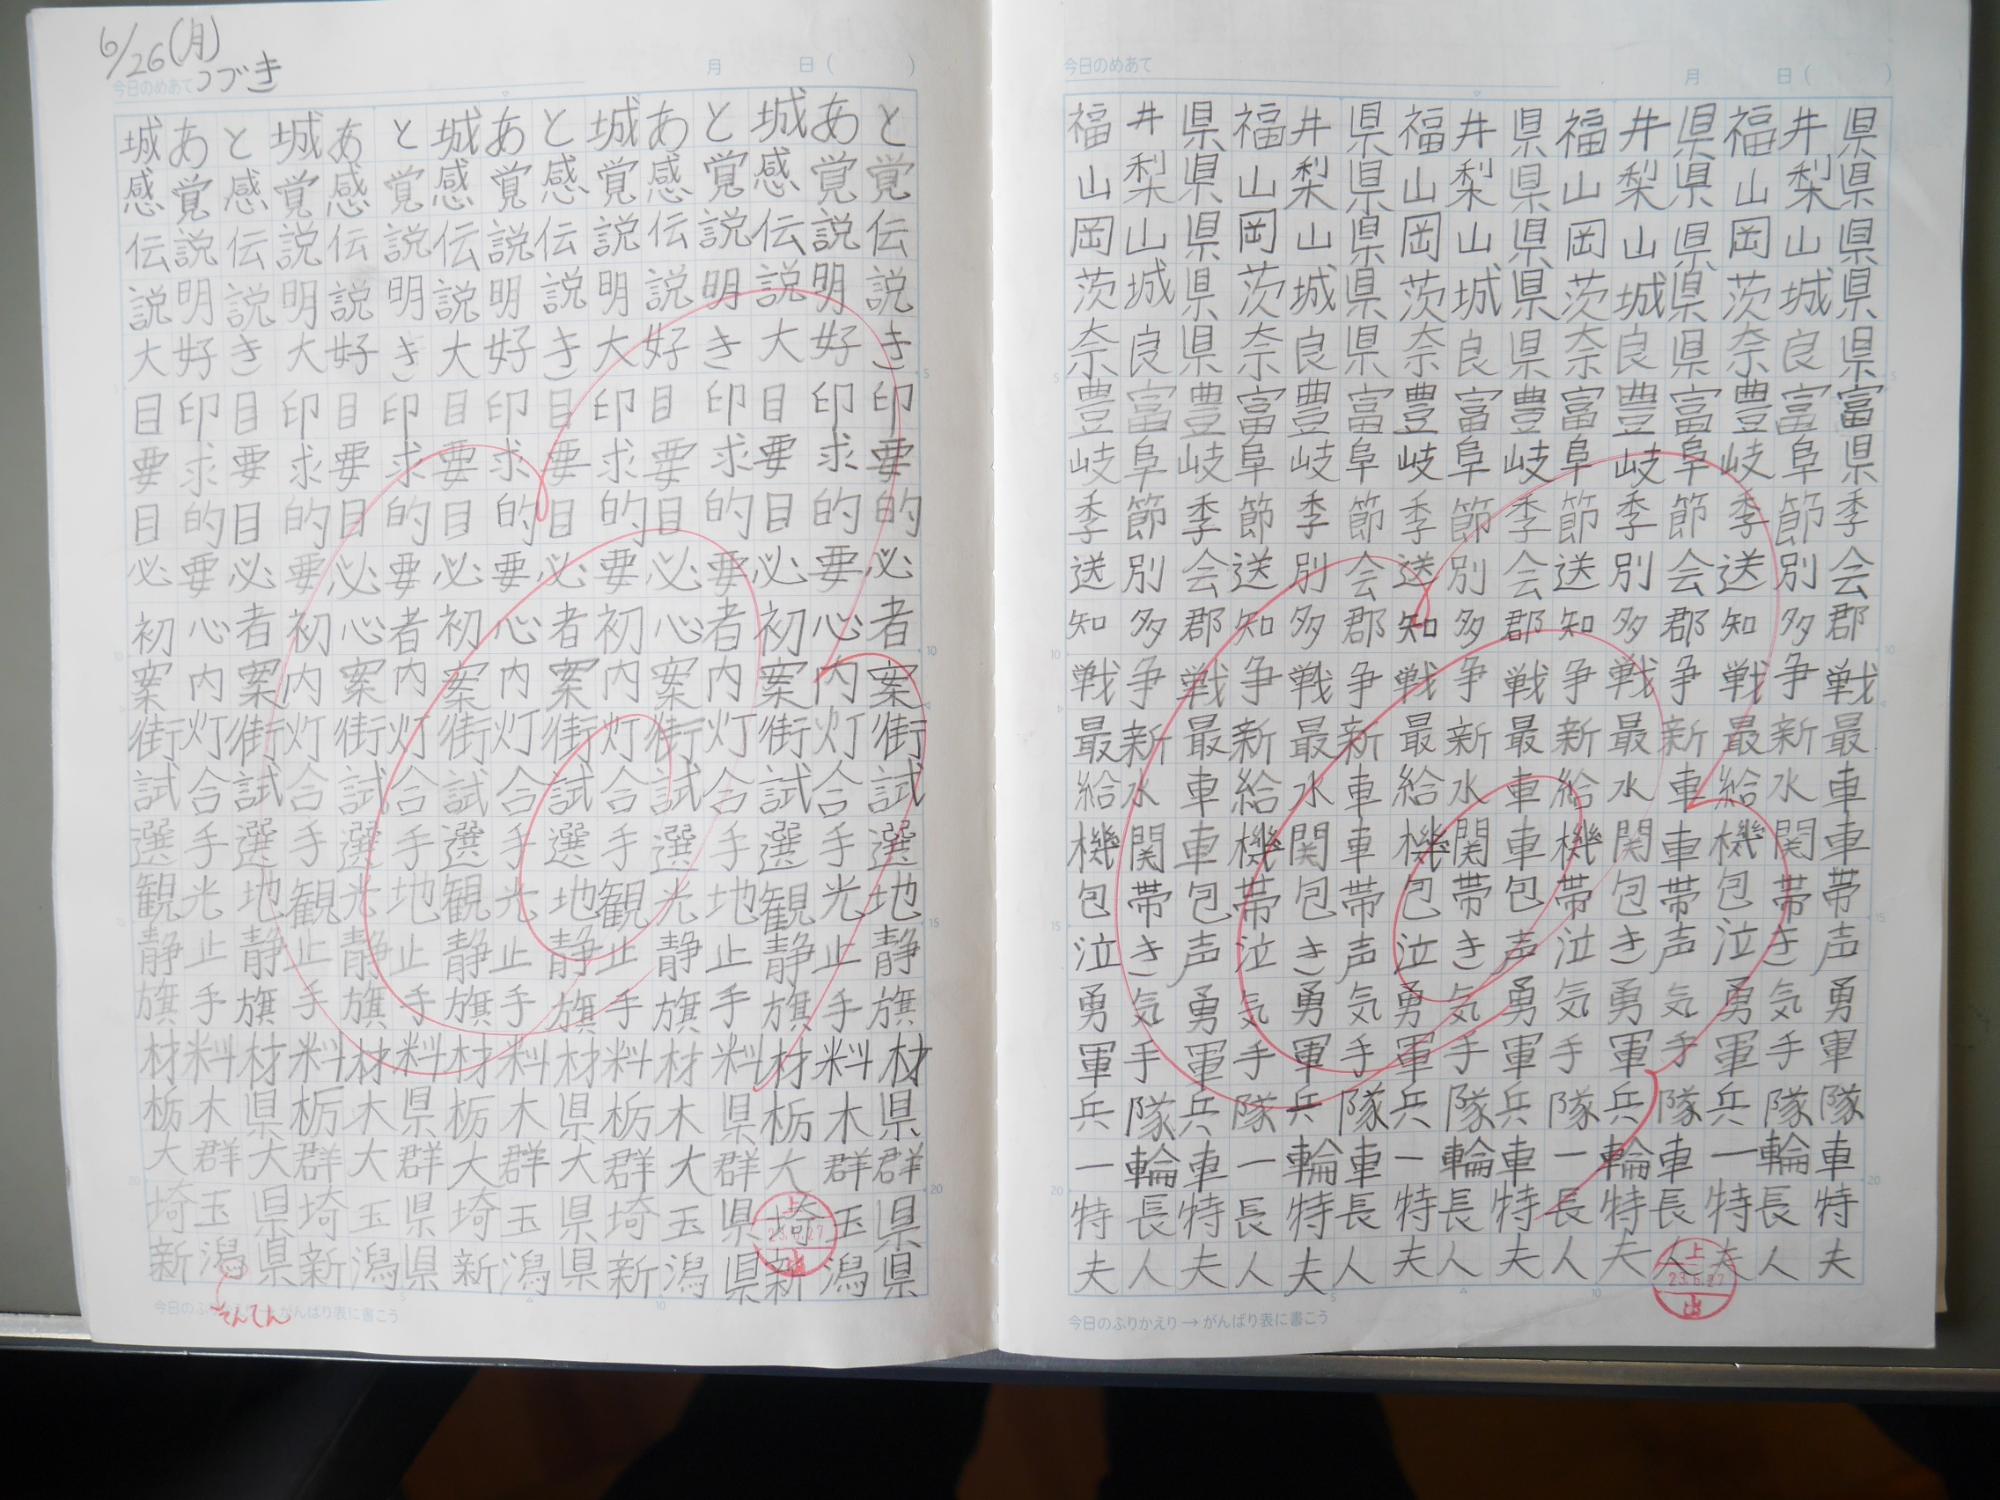 6/26(月)
つづき
今日のめあて
月 日( )
城あと城あと城あと城あと城あと
感覚感覚感覚感覚感覚感覚感覚覚
伝説伝説伝説伝説伝説伝説伝説伝
説明説明説明説明説明説明説明説
大好き大好き大好き大好き大好き
目印目印目印目印目印目印目印印
要求要求要求要求要求要求要求要
目的目的目的目的目的目的目的的
必要必要必要必要必要必要必要必
初心者初心者初心者初心者初心者
案内案内案内案内案内案内案内案
街灯街灯街灯街灯街灯街灯街灯街
試合試合試合試合試合試合試合試
選手選手選手選手選手選手選手選
観光地観光地観光地観光地観光地
静止静止静止静止静止静止静止静
旗手旗手旗手旗手旗手旗手旗手旗
材料材料材料材料材料材料材料材
栃木県栃木県栃木県栃木県栃木県
大群大群大群大群大群大群大群群
埼玉県埼玉県埼玉県埼玉県埼玉県
新潟県新潟県新潟県新潟県新潟県
上 23.6.27
今日のふりかえり→がんばり表に書こう
今日のめあて
月 日( )
福井県福井県福井県福井県福井県
山梨県山梨県山梨県山梨県山梨県
岡山県岡山県岡山県岡山県岡山県
茨城県茨城県茨城県茨城県茨城県
奈良県奈良県奈良県奈良県奈良県
豊富豊富豊富豊富豊富豊富豊富富
岐阜岐阜岐阜岐阜岐阜岐阜岐阜県
季節季節季節季節季節季節季節季
送別会送別会送別会送別会送別会
知多郡知多郡知多郡知多郡知多郡
戦争戦争戦争戦争戦争戦争戦争戦
最新最新最新最新最新最新最新最
給水車給水車給水車給水車給水車
機関車機関車機関車機関車機関車
包帯包帯包帯包帯包帯包帯包帯帯
泣き声泣き声泣き声泣き声泣き声
勇気勇気勇気勇気勇気勇気勇気勇
軍手軍手軍手軍手軍手軍手軍手軍
兵隊兵隊兵隊兵隊兵隊兵隊兵隊隊
一輪車一輪車一輪車一輪車一輪車
特長特長特長特長特長特長特長特
夫人夫人夫人夫人夫人夫人夫人夫
上 23.6.27
今日のふりかえり→がんばり表に書こう